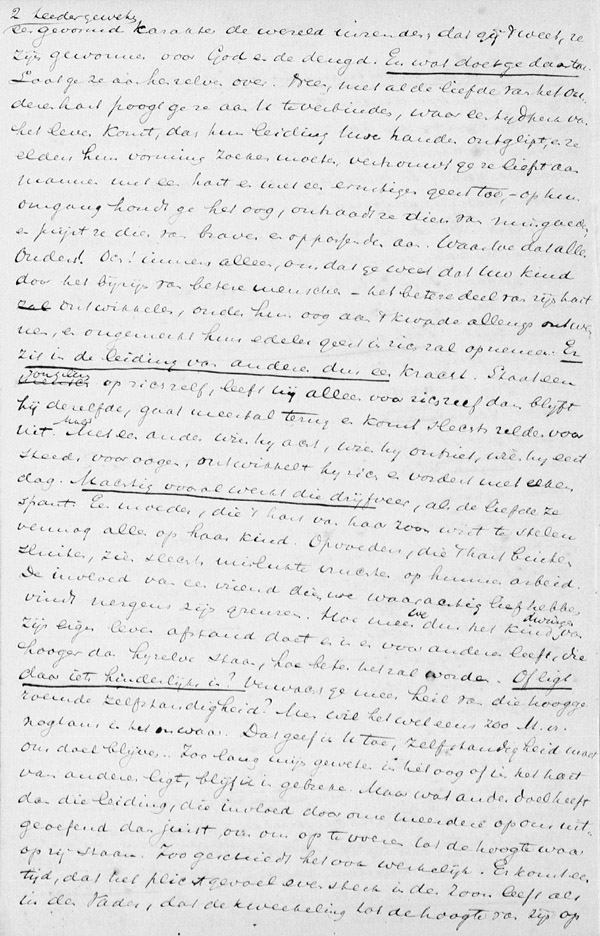 2 teedergevoelig
en gevormd karakter de wereld inzenden, dat gij 't weet, ze
zijn gewonnen voor God en de deugd. En wat doet ge daartoe.
Laat ge ze aan henzelve over. Neen, met al de liefde van het ou-
derenhart poogt ge ze aan U te verbinden, waar een tijdperk van
het leven komt, dat hun leiding Uwe handen ontglipt, en ze
elders hun vorming zoeken moeten, vertrouwt ge ze liefst aan
mannen met een hart en met een ernstigen geest toe, - op hun
omgang houdt ge het oog, ontraadt ze dien van min goeden
en prijst ze dien van brave en oppassenden aan. Waartoe dat alles
Ouders! Och! immers alleen, omdat ge weet dat Uw kind
door het bijzijn van betere menschen - het betere deel van zijn hart
zal ontwikkelen, onder hun oog aan 't kwade allengs ontwen-
nen, en ongemerkt hun edelen geest in zich zal opnemen. Er
zit in de leiding van anderen dus een kracht. Staat een
jongeling op zichzelf, leeft hij alleen voor zichzelf dan blijft
hij dezelfde, gaat meestal terug en komt slechts zelden voor
uit. Met een ander wien hij acht, wien hij ontziet, wien hij eert
steeds voor oogen, ontwikkelt hij zich en vordert met elken
dag. Machtig vooral werkt die drijfveer, als de liefde ze
spant. Een moeder, die 't hart van haar zoon wist te stelen
vermag alles op haar kind. Opvoeders, die 't hart buiten
sluiten, zien slechts mislukte vruchten op hunnen arbeid.
De invloed van een vriend dien we waarachtig lief hebben
vindt nergens zijn grenzen. Hoe meer we dus het kind dwingen van
zijn eigen leven afstand doet en in en voor anderen leeft, die
hooger dan hijzelve staan, hoe beter het zal worden. Of ligt
daar iets hinderlijks in? Verwacht ge meer heil van die hoogge
roemde zelfstandigheid? Men wil het wel eens zoo M. H.
nogtans is het onwaar. Dat geef ik U toe, zelfstandigheid moet
ons doel blijven. Zoolang mijn geweten in het oog of in het hart
van anderen ligt, blijf ik in gebreke. Maar wat ander doel heeft
dan die leiding, die invloed door onze meerderen op ons uit-
geoefend dan juist, om ons op te voeren tot de hoogte waar-
op zij staan. Zoo geschiedt het ook werkelijk. Er komt een
tijd, dat het plichtgevoel even sterk in den zoon leeft als
in den Vader, dat de kweekeling tot de hoogte van zijn op